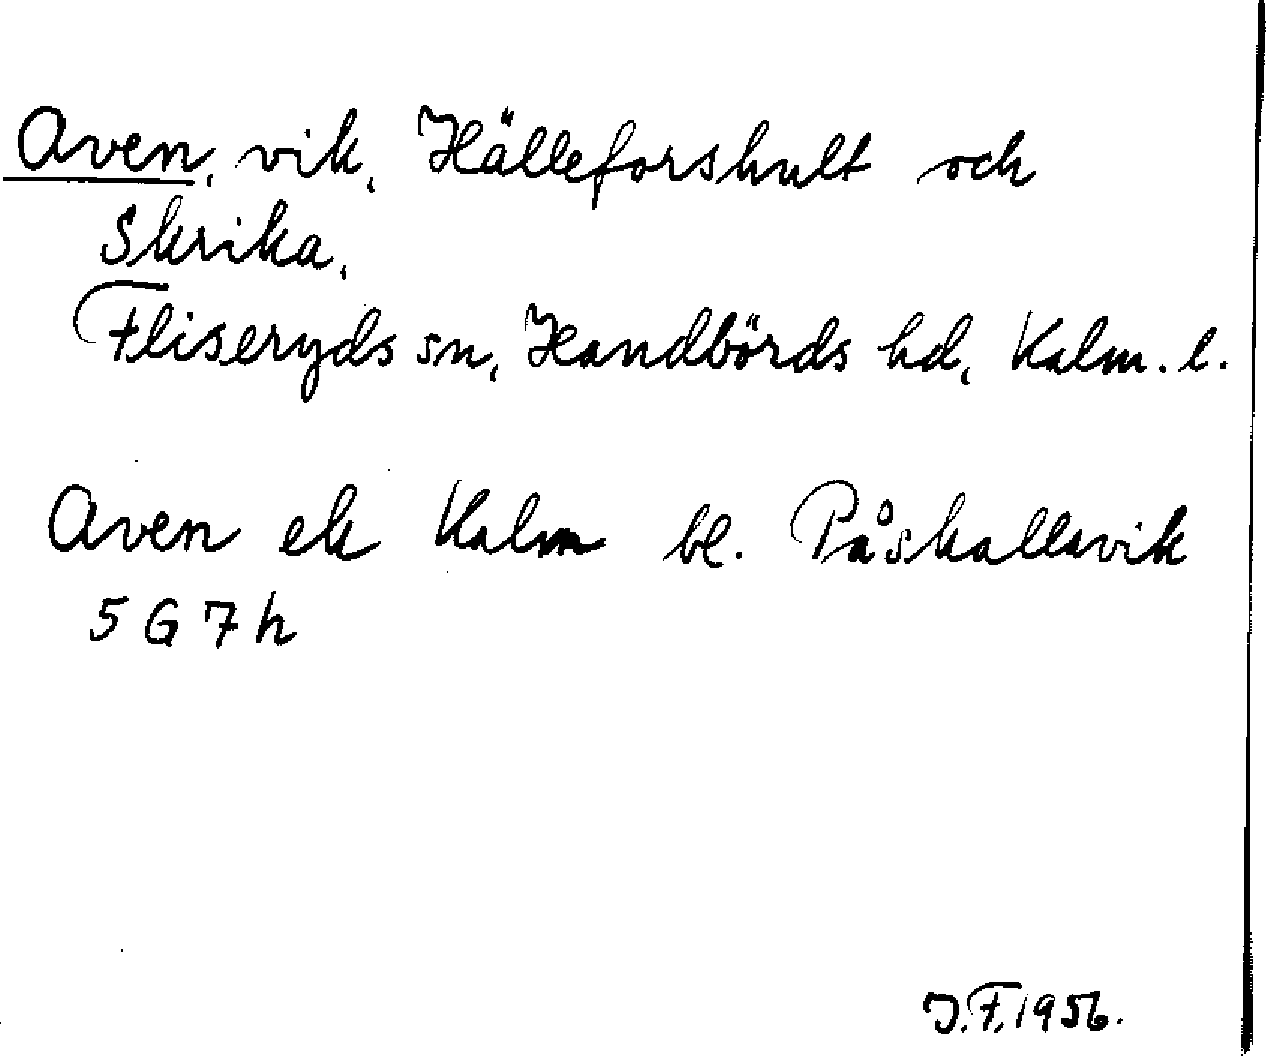 Aven, vik, Hälleforshult och
Skrika,
Fliseryds sn, Handbörds hd, Kalm. l.
Aven ek Kalm bl. Påskallavik
5 G 7 h
J.F. 1956.